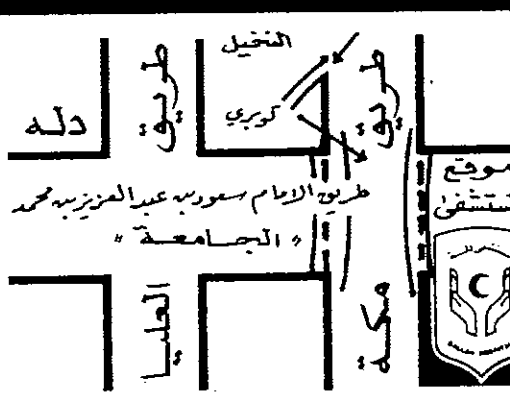 النخيل
طريق
طريق
كوبري
دله
موقع
مستشفى
طريق الامام سعود بن عبد العزيز بن محمد
« الجامعة »
العليا
مكة